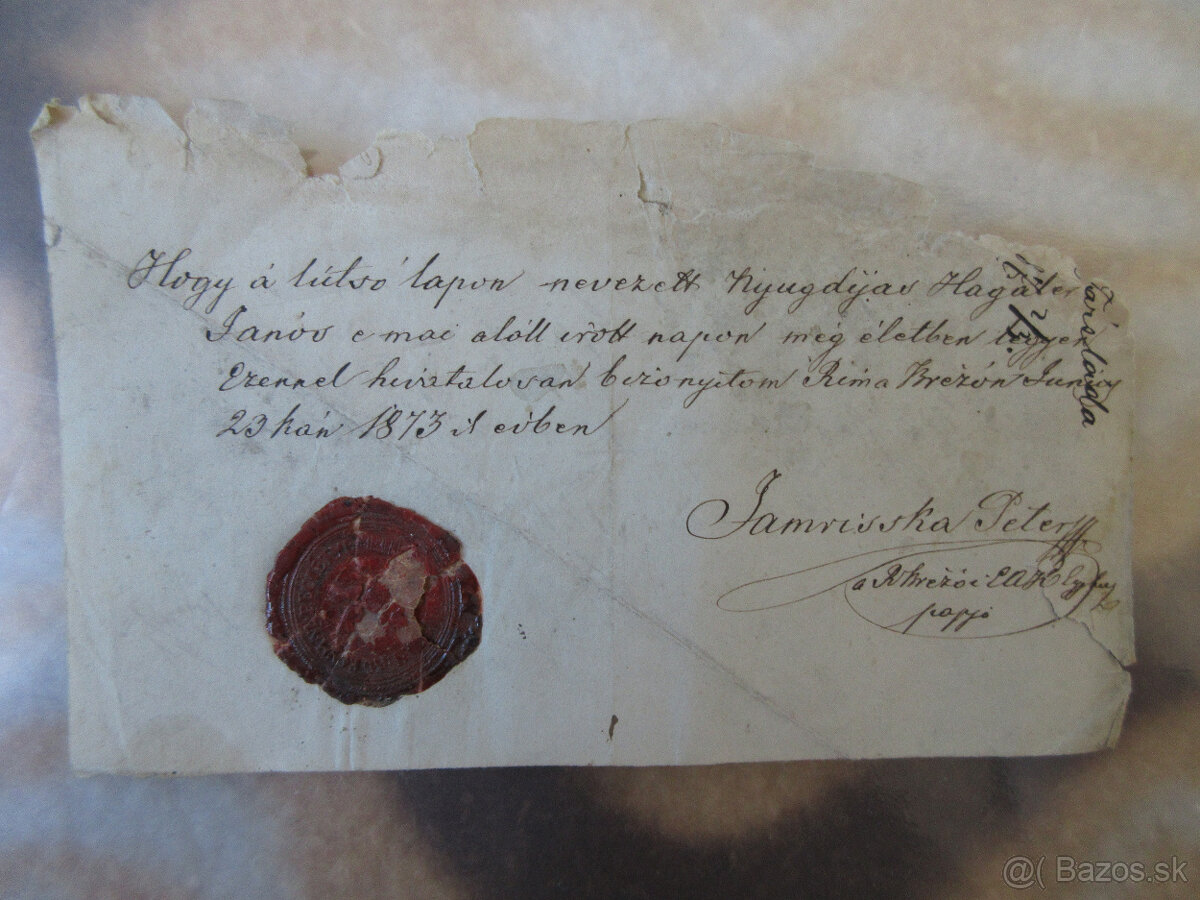 Hogy á lútsó lapon nevezett Nyugdijas Hagáter
Janós e mai alóll irott napon még életben legyen
Ezennel hivatalosan bizonyitom Rima Brézón Juny
23 kán 1873 ik évben
Jamrisska Péter
a R Brézói E A H Egyház
papja
@( Bazos.sk